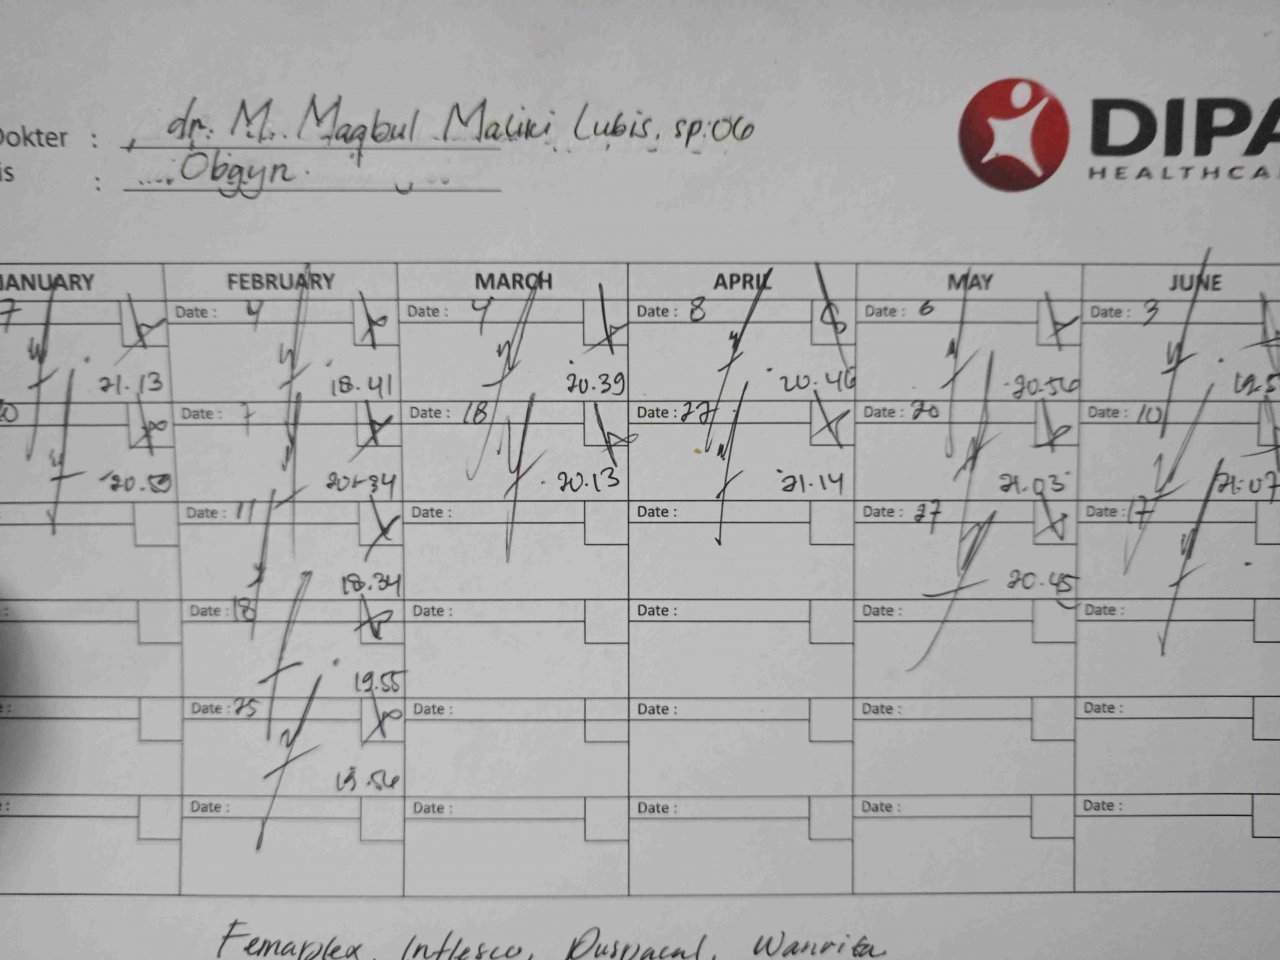 Dokter : dr. M. Maqbul Maliki Lubis, sp.OG
is : Obgyn.
DIPA
HEALTHCA
JANUARY FEBRUARY MARCH APRIL MAY JUNE
7 Date : 4 Date : 4 Date : 8 Date : 6 Date : 3
21.13 18.41 20.39 20.46 20.56 19.5
Date : 7 Date : 18 Date : 27 Date : 20 Date : 10
20.34 20.13 21.14 21.03 21.07
Date : 11 Date : Date : Date : 27 Date : 17
18.34 20.45
Date : 18 Date : Date : Date : Date :
19.55
Date : 25 Date : Date : Date : Date :
19.56
Date : Date : Date : Date : Date :
Femaplex, Inflesco, Duspacal, Wanrita